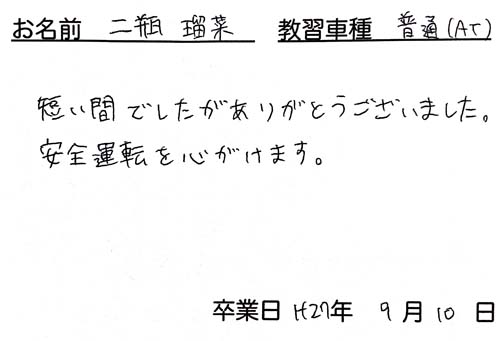 お名前 二瓶 瑠菜 教習車種 普通(AT)
短い間でしたがありがとうございました。
安全運転を心がけます。
卒業日 H27年 9月10日